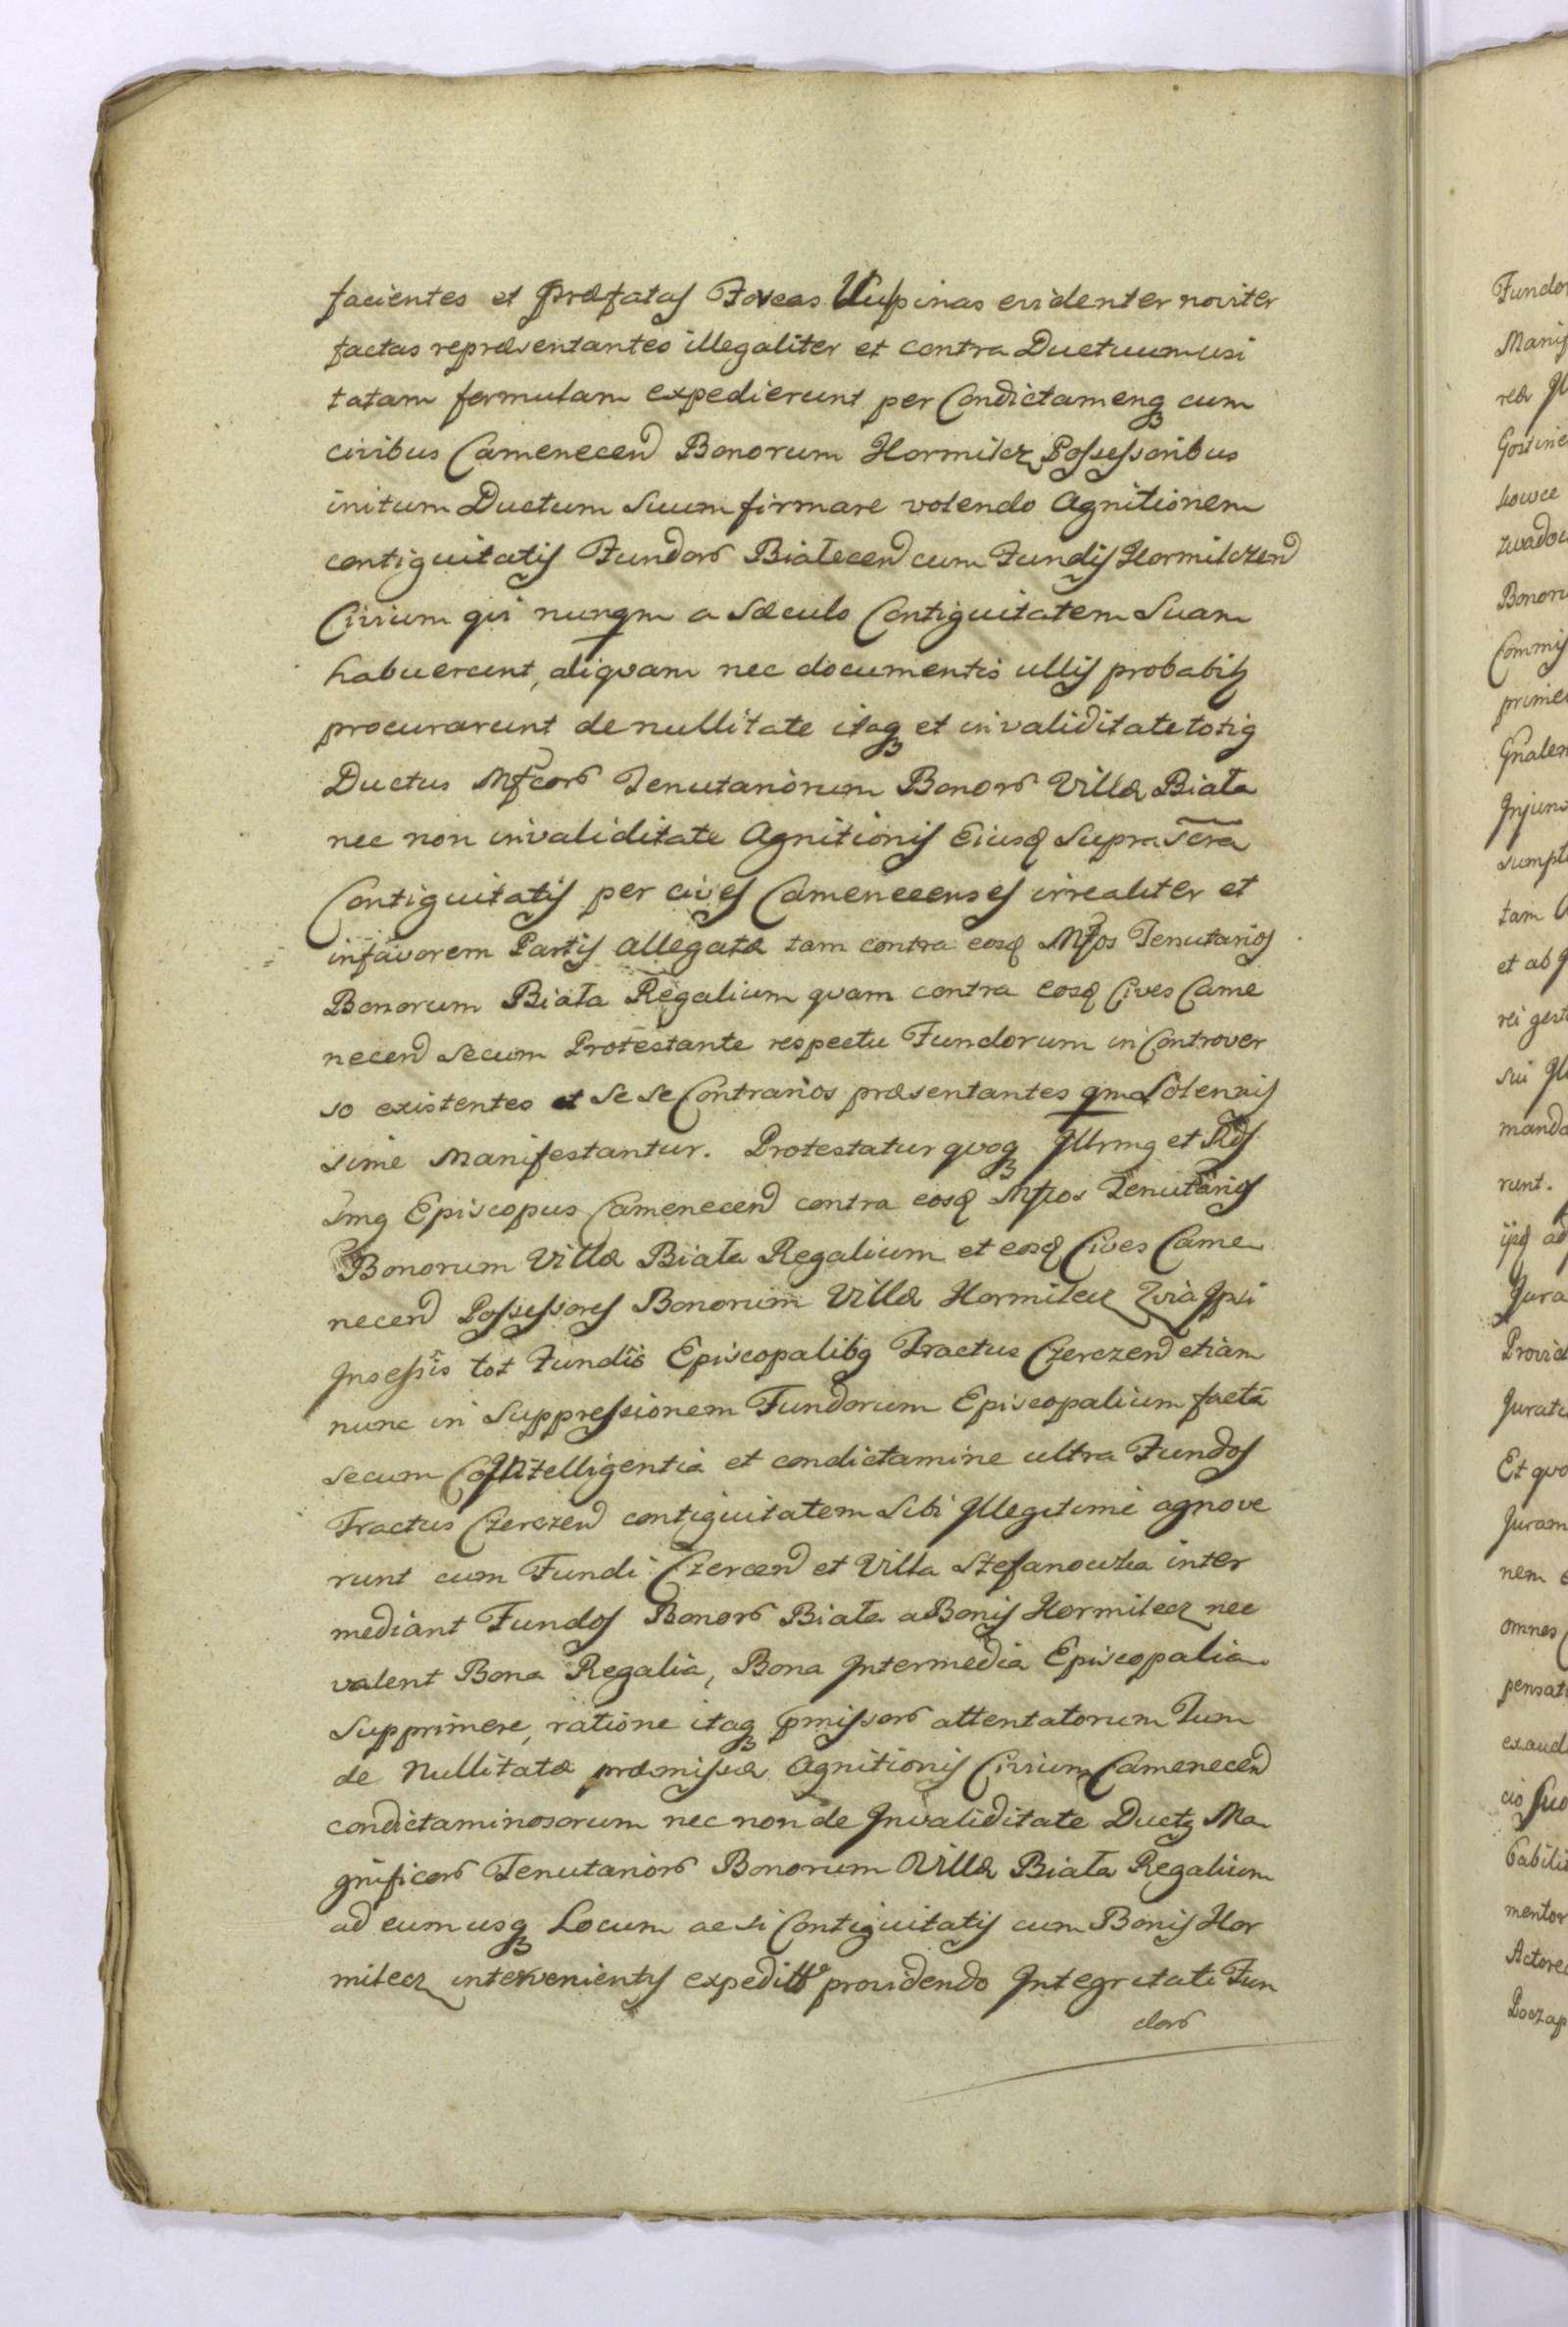 facientes et præfatas Foveas Vulpinas evidenter noviter
factas repræsentantes illegaliter et contra Ductuum usi
tatam formulam expedierunt per Condictamenq cum
civibus Camenecen Bonorum Hormilcz Possessoribus
initum Ductum Suum firmare volendo Agnitionem
contiguitatis Fundor Bialecen cum Fundis Hormilczen
Civium qui nunqm a Sæculo Contiguitatem Suam
habuerunt, aliquam nec documentis ullis probabilz
procurarunt de nullitate itaq et invaliditate totiq
Ductus Mfcor Tenutariorum Bonor Villæ Biała
nec non invaliditate Agnitionis Eiusd Supra Scra
Contiguitatis per cives Camenecenses irrealiter et
in favorem Partis allegatæ tam contra eosd Mfos Tenutarios
Bonorum Biała Regalium quam contra eosd Cives Came
necen Secum Protestante respectu Fundorum in Controver
so existentes et Se Se Contrarios præsentantes qm Solennis
sime Manifestantur. Protestatur quoq Illrmq et Rds
Smq Episcopus Camenecen contra eosd Mfos Tenutarios
Bonorum Villæ Biała Regalium et eosd Cives Came
necen Possessores Bonorum Villæ Hormilecz Qvia Ipsi
Insessis tot Fundis Episcopalibq Tractus Czerczen etiam
nunc in Suppressionem Fundorum Episcopalium facta
secum CoIntelligentia et condictamine ultra Fundos
Tractus Czerczen contiguitatem Sibi Illegitime agnove
runt cum Fundi Czercen et Villa Stefanowka inter
mediant Fundos Bonor Biała a Bonis Hormilecz nec
valent Bona Regalia, Bona Intermedia Episcopalia
Supprimere, ratione itaq pmissor attentatorum Tum
de Nullitatæ præmissæ Agnitionis Civium Camenecen
condictaminosorum nec non de Invaliditate Ductq Ma
gnificor Tenutarior Bonorum Villæ Biała Regalium
ad eum usq Locum ac si Contiguitatis cum Bonis Hor
milecz intervenientis expediti providendo Integritati Fun
dor